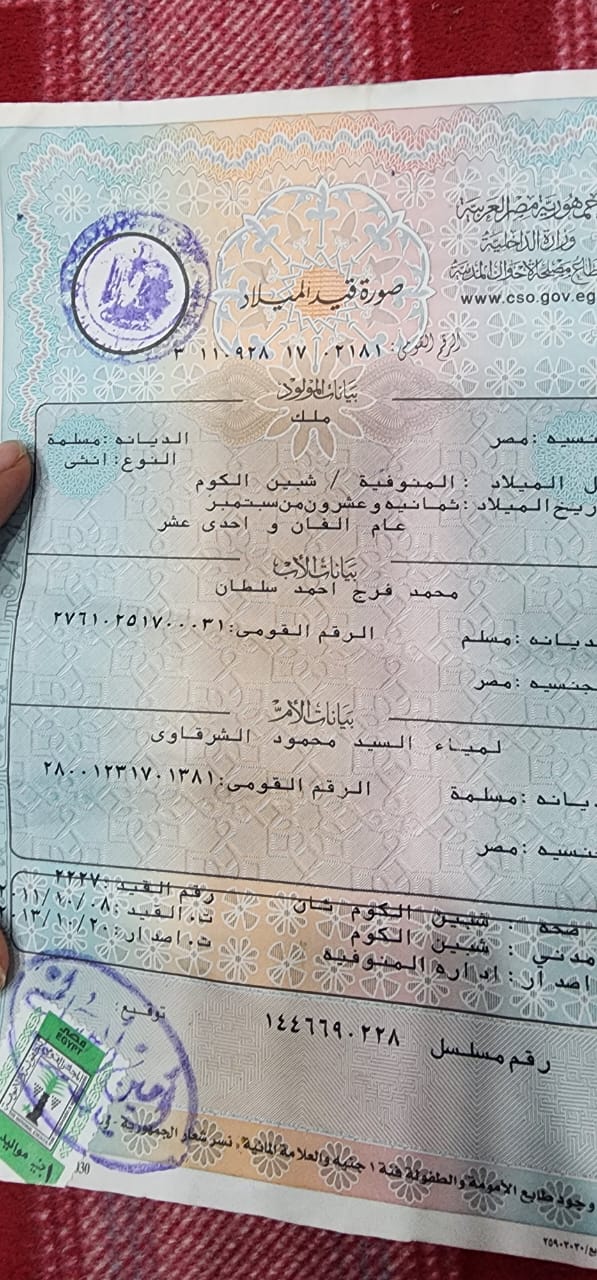 جمهورية مصر العربية
وزارة الداخلية
قطاع مصلحة الأحوال المدنية
www.cso.gov.eg
صورة قيد الميلاد
الرقم القومى: ٣ ١١٠٩٢٨ ١٧ ٠٢١٨١
بيانات المولود
ملك
جنسيه : مصر الديانه : مسلمة
النوع : انثى
ل الميلاد : المنوفية / شبين الكوم
ريخ الميلاد : ثمانيه وعشرون من سبتمبر
عام الفان و احدى عشر
بيانات الأب
محمد فرج احمد سلطان
ديانه : مسلم الرقم القومى : ٢٧٦١٠٢٥١٧٠٠٠٣١
جنسيه : مصر
بيانات الأم
لمياء السيد محمود الشرقاوى
ديانه : مسلمة الرقم القومى : ٢٨٠٠١٢٣١٧٠١٣٨١
جنسيه : مصر
صحه : شبين الكوم ثان رقم القيد : ٢٢٢٧
مدنى : شبين الكوم ت.القيد : ١١/١٠/٠٨
اصدار : ادارة المنوفية ت.اصدار : ١٣/١٠/٢٠
توقيع :
رقم مسلسل ١٤٤٦٦٩٠٢٢٨
مصر
EGYPT
وجود طابع الأمومة والطفولة فئة ١ جنيه والعلامة المائية ، نسر شعار الجمهورية